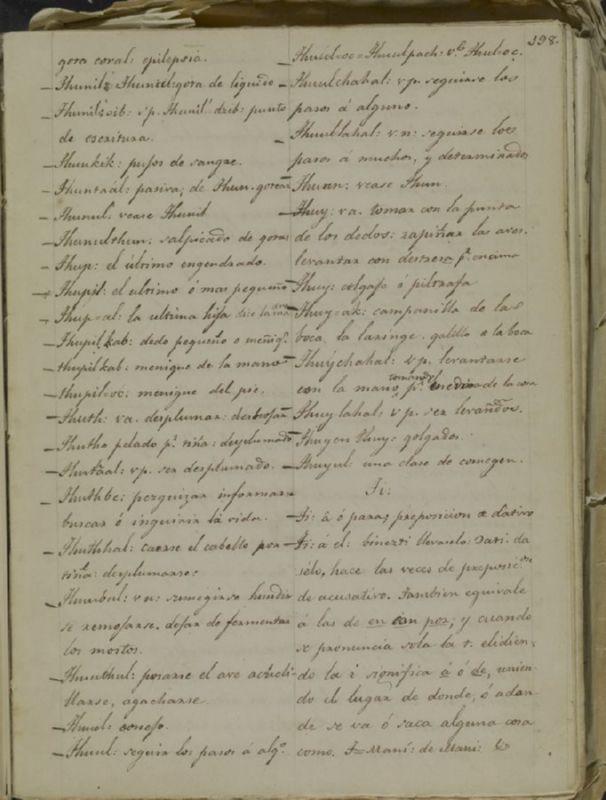 398.
gota coral: epilepsia.
— Thunil: Thuntul: gota de liquido
— Thunildzib: s p. Thunil dzib: punto
de escritura.
— Thunkik: pujos de sangre.
— Thuntaal: pasiva, de Thun. gotear
— Thunul. vease Thunil
— Thunulthun: salpicado de gotas
— Thup: el ultimo engendrado.
— Thupil: el ultimo ó mas pequeño
— Thup-al: la ultima hija dice la madre
— Thupil kab: dedo pequeño o meñiq.e
— thupil kab: menique de la mano
— thupil-oc: menique del pie.
— Thuth: va. desplumar:
— Thutha pelado p.r tiña: desplumado
— Thuthaal: v p. ser desplumado.
— Thuthbe: perquizar informarse
buscar ó inquirir la vida.
— Thuththal: caerse el cabello por
tiña: desplumarse:
— Thuubul: vn: sumegirse hundir
se remojarse. dejar de fermentar
los mostos.
— Thuuthul: posarse el ave
llarse, agacharse.
— Thuul: conejo.
— Thuul: seguir los pasos á alg.o
— Thuul-oc = Thuulpach: v.e Thul-oc.
— Thuulchahal: v p. seguirse los
pasos á alguno.
— Thuullahal: v.n: seguirse los
pasos á muchos, y determinados
Thuun: vease Thun.
— Thuy: va. tomar con la punta
de los dedos: zapiñar las aves.
levantar con destreza p.r encima
— Thuy: colgajo ó piltrafa
— Thuy-ak: campanilla de la
boca la laringe. galillo o la boca
— Thuychahal: v p. levantarse
con la mano, tomandol p.r enedio de la cosa
— Thuylahal: v p. ser levañdos.
— Thuyen thuy: golgados.
— Thuyul: una clase de comegen.
Ti:
— Ti: á ó para; preposicion de dativo
— Ti: á el: binezti llevaselo: zati: da
selo, hace las veces de preposic.on
de acusativo. Tambien equivale
á las de en con por; y cuando
se pronuncia sola la t. elidien,
do la i significa á ó de, unien
do el lugar de donde, ó adon
de se va ó saca alguna cosa
como. T=Maní: de Mani: &